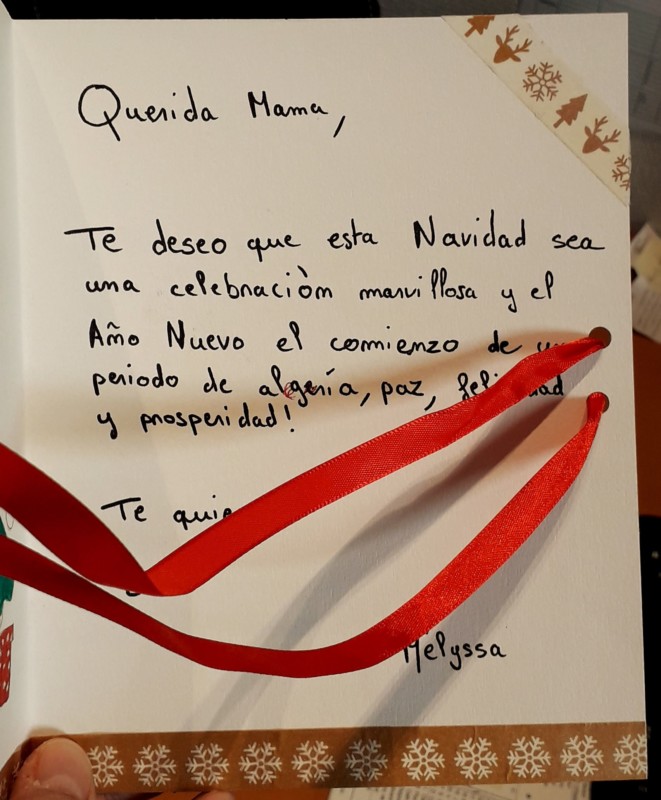 Querida Mama,
Te deseo que esta Navidad sea
una celebraciòm marvillosa y el
Año Nuevo el comienzo de
periodo de algería, paz,
y prosperidad!
Te
Mélyssa